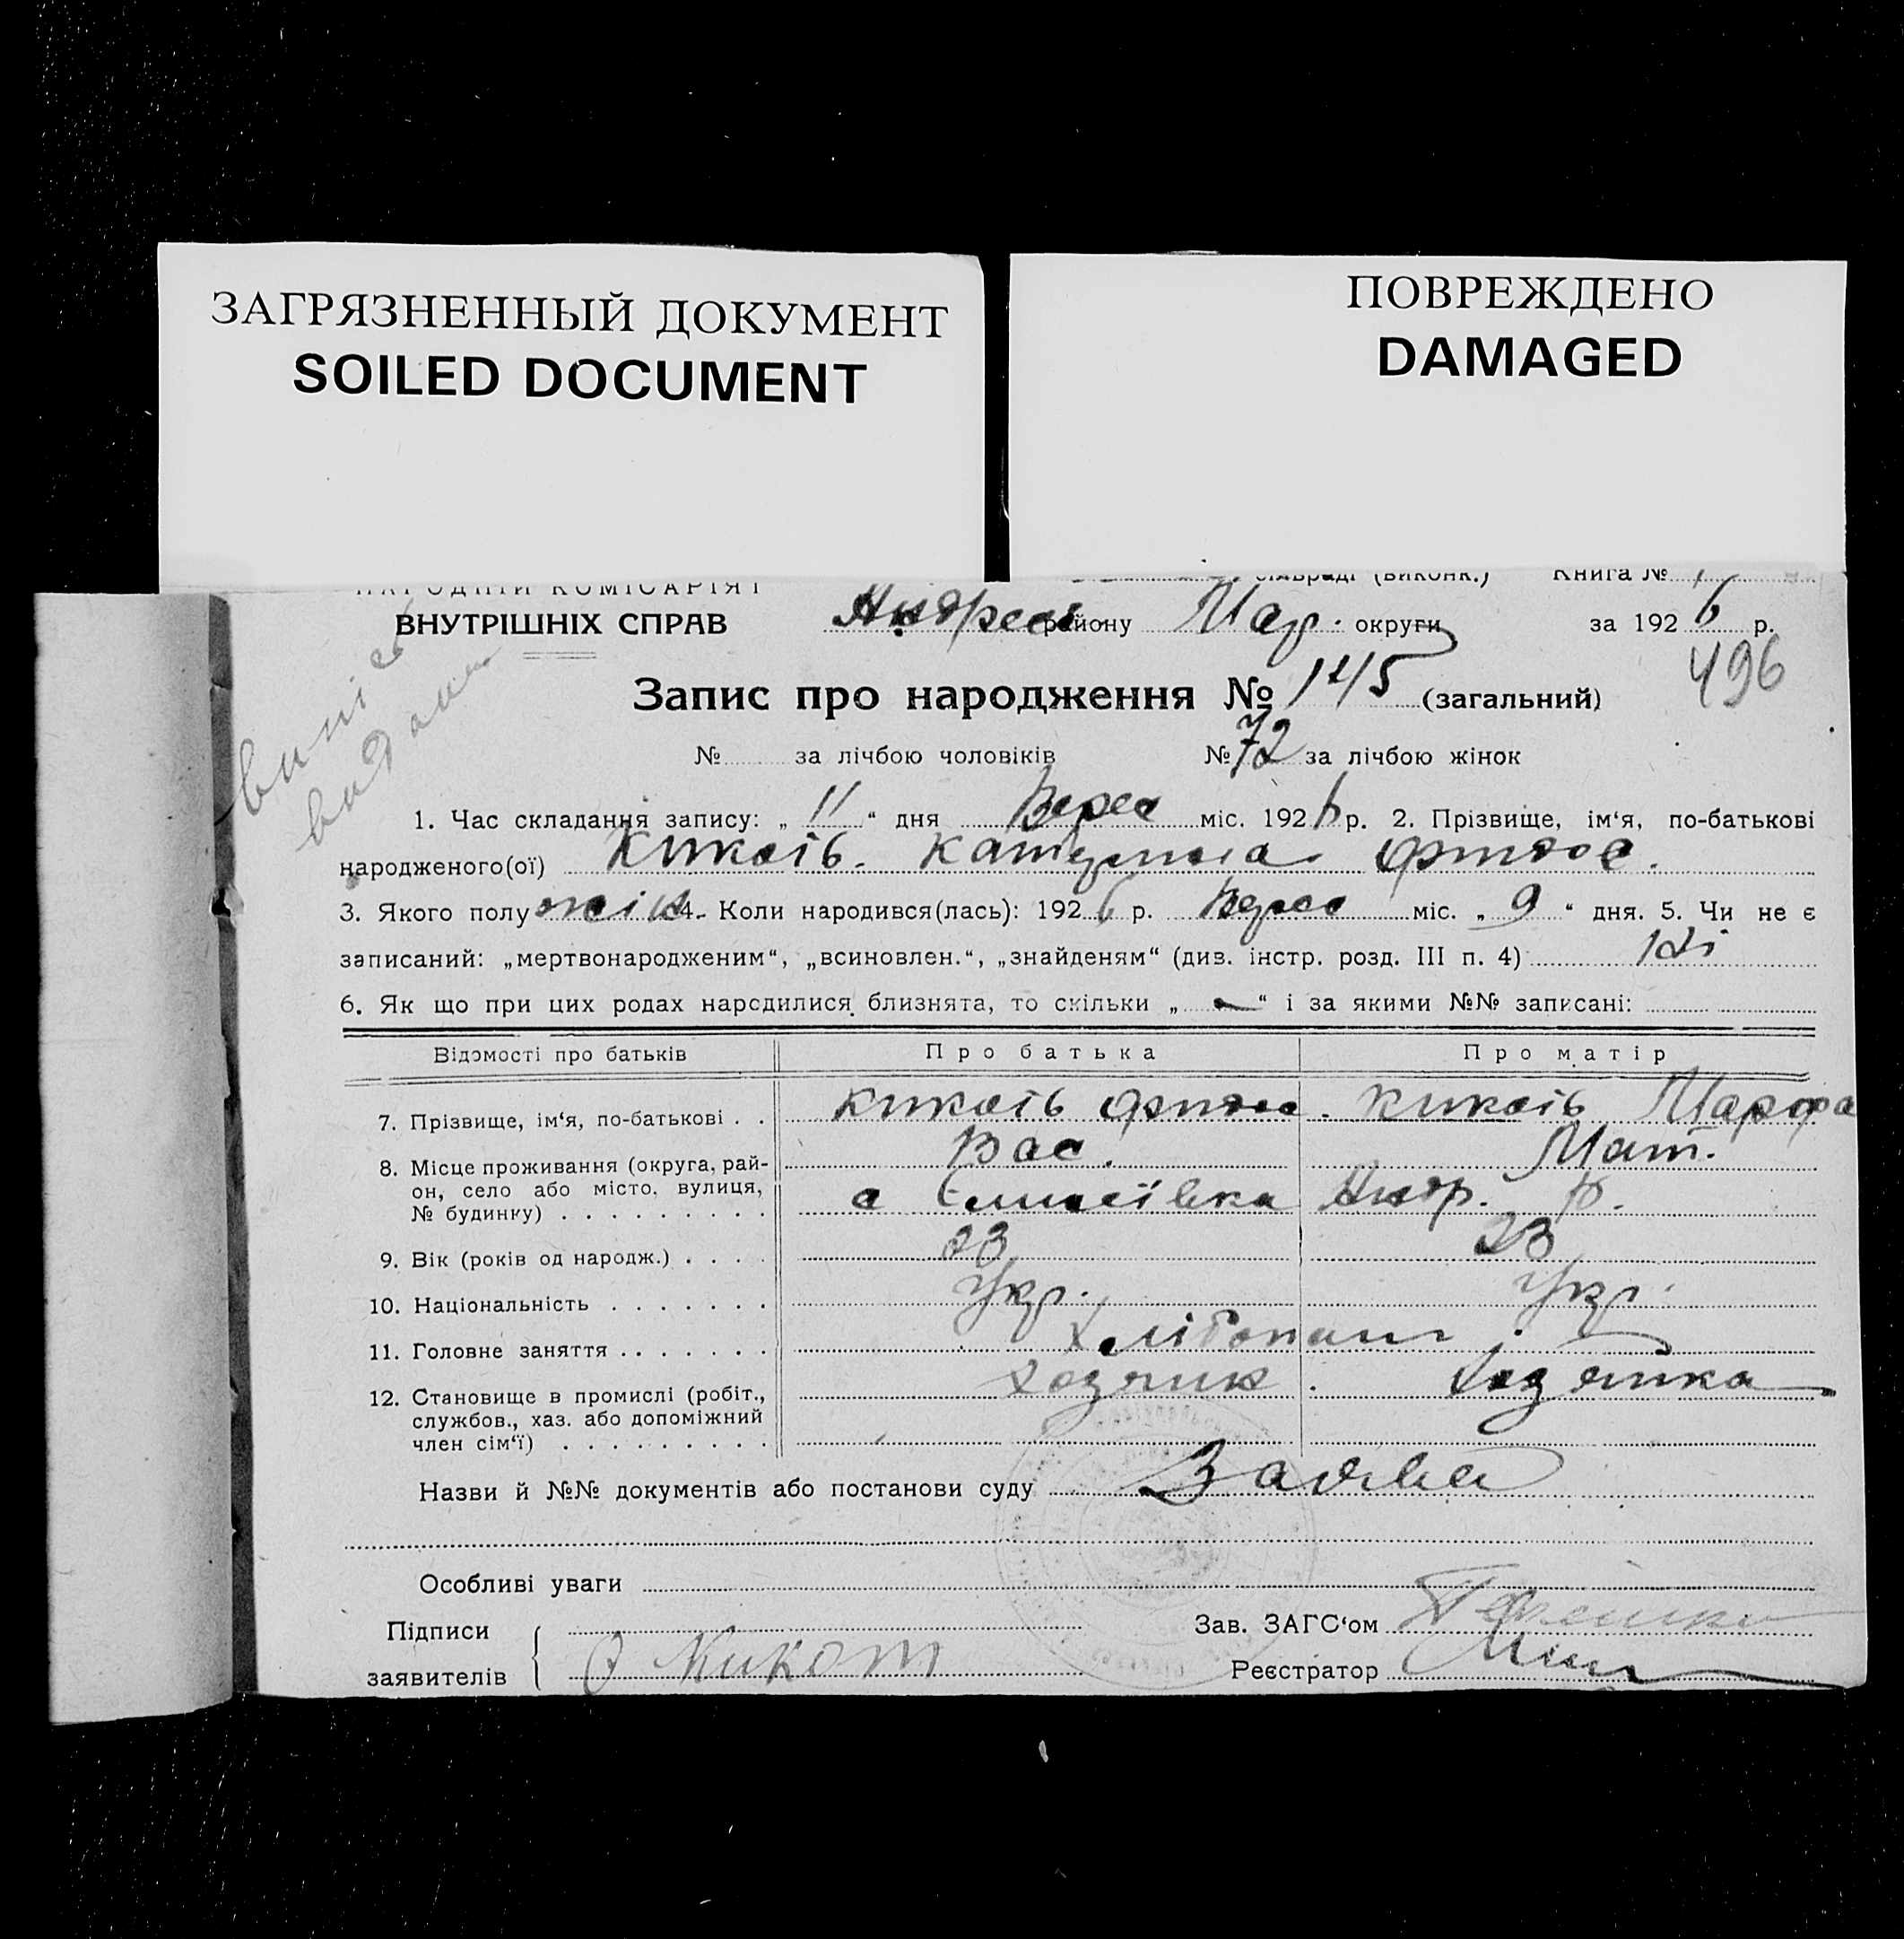 ЗАГРЯЗНЕННЫЙ ДОКУМЕНТ
SOILED DOCUMENT
ПОВРЕЖДЕНО
DAMAGED
НАРОДНІЙ КОМІСАРІЯТ (виконк.) Книга №
ВНУТРІШНІХ СПРАВ Андреев району Мар. округи за 1926 р.
496
Запис про народження № 145 (загальний)
№ за лічбою чоловіків № 72 за лічбою жінок
випис
видана
1. Час складання запису: „ 11 “ дня Верес міс. 1926 р. 2. Прізвище, ім‘я, по-батькові
народженого(ої) Катерина
3. Якого полу жін 4. Коли народився(лась): 1926 р. Верес міс. „ 9 “ дня. 5. Чи не є
записаний: „мертвонародженим“, „всиновлен.“, „знайденям“ (див. інстр. розд. III п. 4) ні
6. Як що при цих родах народилися близнята, то скільки „ — “ і за якими №№ записані:
Відомості про батьків Про батька Про матір
7. Прізвище, ім‘я, по-батькові . . Марфа
Вас. Мат.
8. Місце проживання (округа, рай-
он, село або місто, вулиця,
№ будинку) . . . . . . . . . с Андр. р.
9. Вік (років од народж.) . . . . 23 23
10. Національність . . . . . . . Укр. Укр.
11. Головне заняття . . . . . . . Хлібопаш
12. Становище в промислі (робіт.,
службов., хаз. або допоміжний
член сім‘ї) . . . . . . . . . Хозяин Хозяйка
Назви й №№ документів або постанови суду Заява
Особливі уваги
Підписи
заявителів
Зав. ЗАГС‘ом
Реєстратор